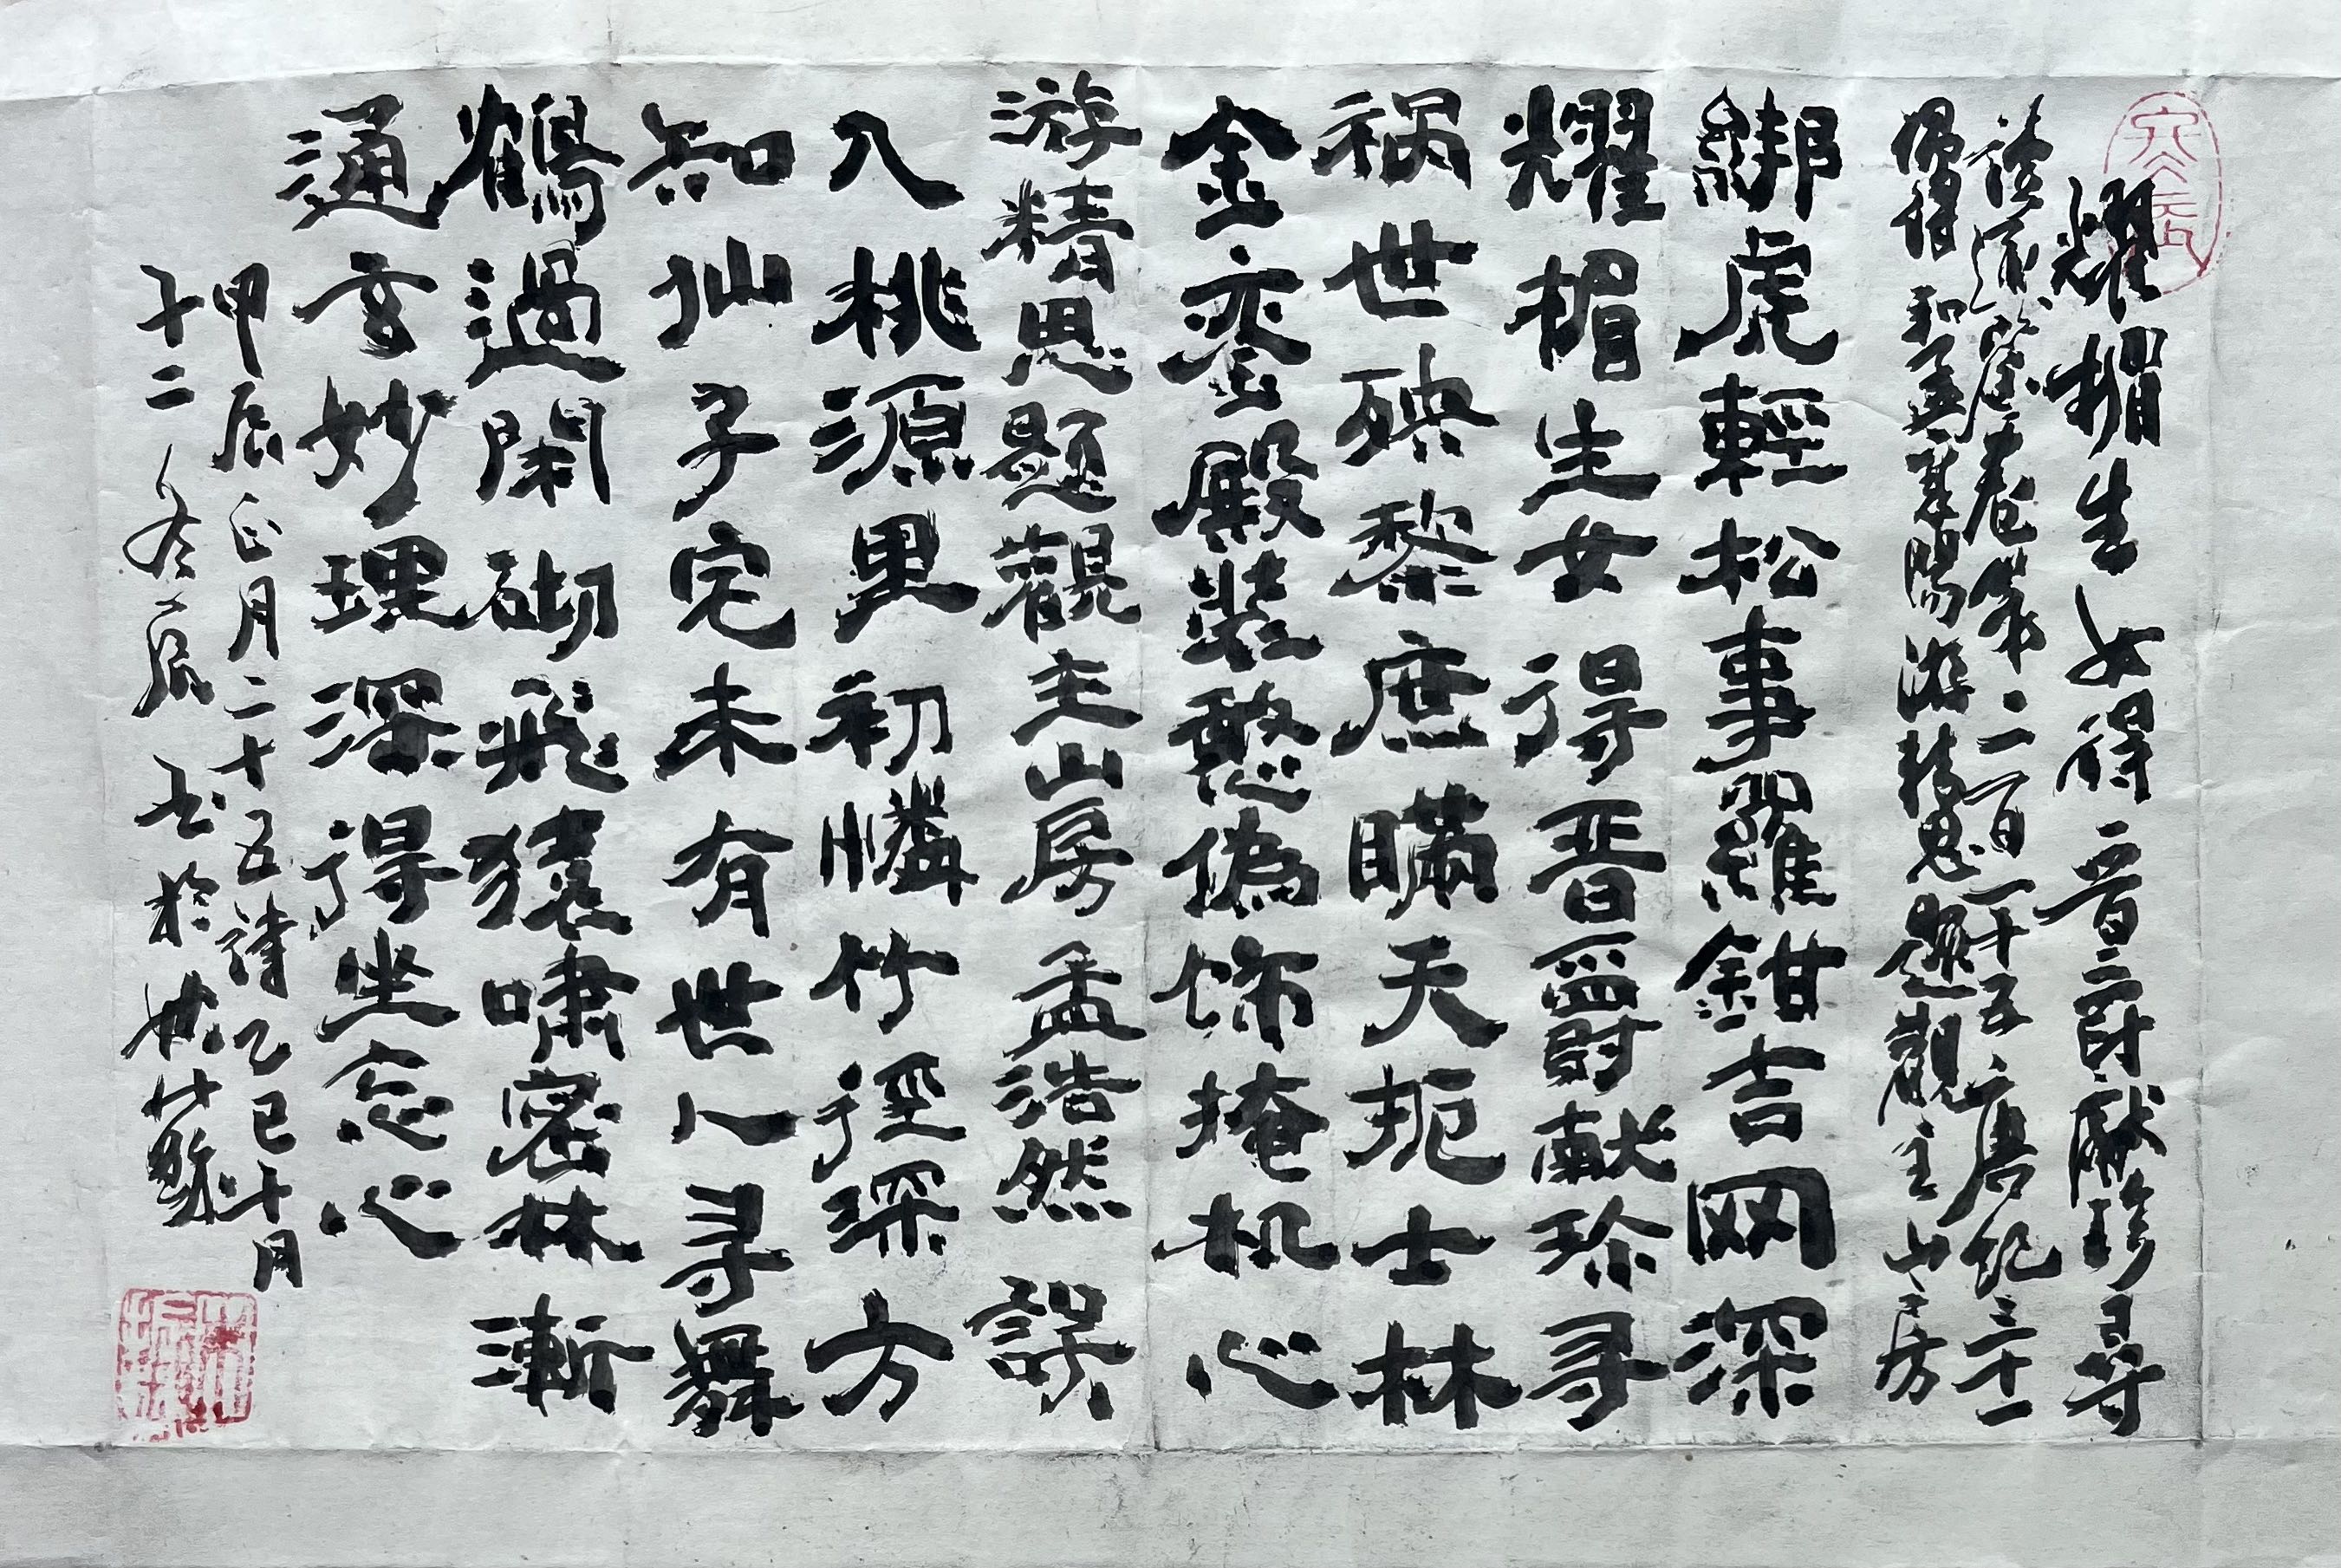 耀楣生女得晋爵献珍寻
读通鉴卷第二百一十五唐纪三十一
偶得和孟襄陽游精思題觀主山房
綁虎輕松事羅鉗吉网深
耀楣生女得晋爵献珍寻
祸世殃黎庶瞒天扼士林
金銮殿裝憨偽饰掩机心
游精思題觀主山房孟浩然 誤
入桃源里初憐竹徑深方
知仙子宅未有世人寻舞
鶴過閑砌飛猿啸密林漸
通玄妙理深得坐忘心
甲辰正月二十五詩乙巳十月
十二冬辰书於